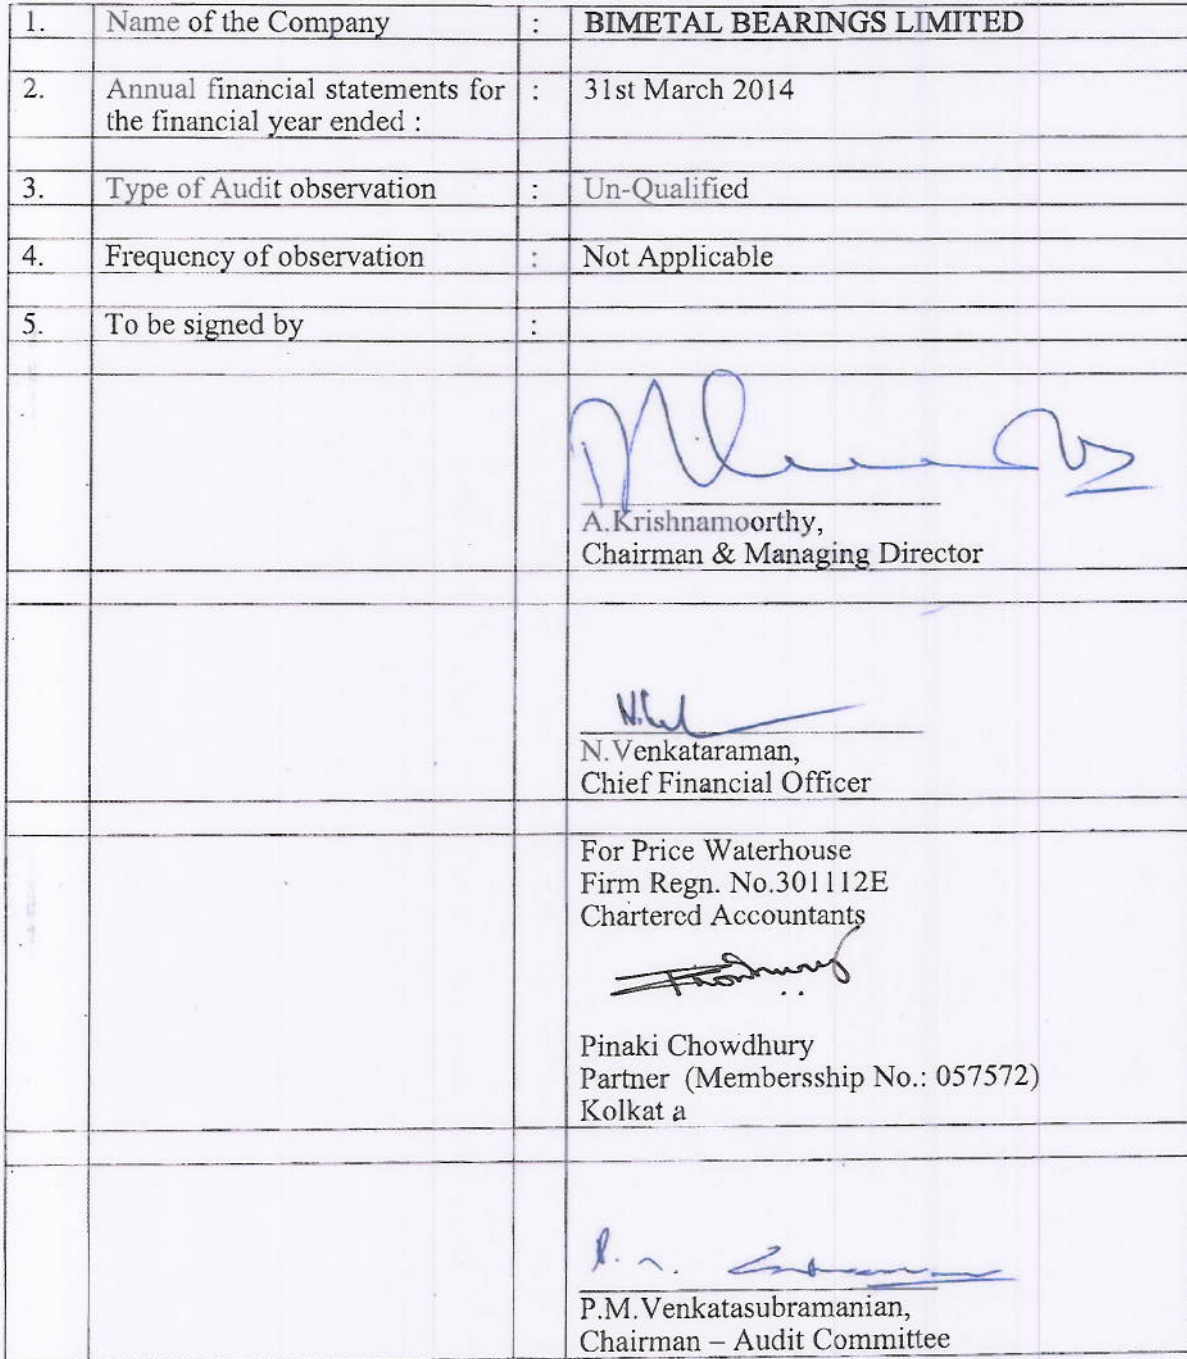 1. Name of the Company : BIMETAL BEARINGS LIMITED
2. Annual financial statements for : 31st March 2014
the financial year ended :
3. Type of Audit observation : Un-Qualified
4. Frequency of observation : Not Applicable
5. To be signed by :
A.Krishnamoorthy,
Chairman & Managing Director
N.Venkataraman,
Chief Financial Officer
For Price Waterhouse
Firm Regn. No.301112E
Chartered Accountants
Pinaki Chowdhury
Partner (Membersship No.: 057572)
Kolkat a
P.M.Venkatasubramanian,
Chairman – Audit Committee